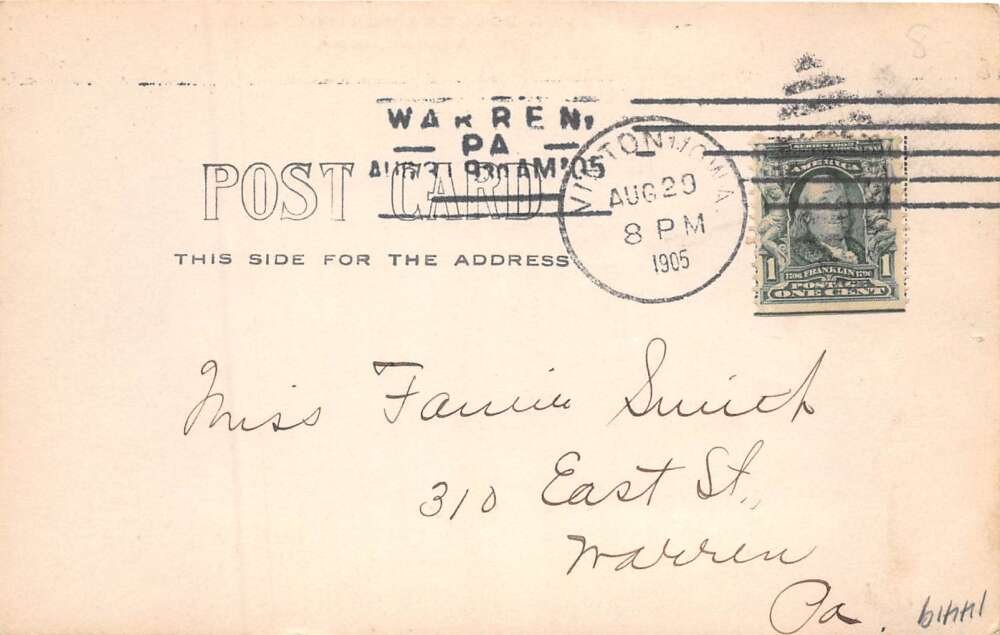 8
WARREN,
PA
AUG 31 930 AM '05
VINTON, IOWA.
AUG 29
8 PM
1905
SERIES 1902
AMERICA
1 1
1706 FRANKLIN 1790
POSTAGE
ONE CENT
POST CARD
THIS SIDE FOR THE ADDRESS
Miss Fannie Smith
310 East St.,
Warren
Pa.
14419